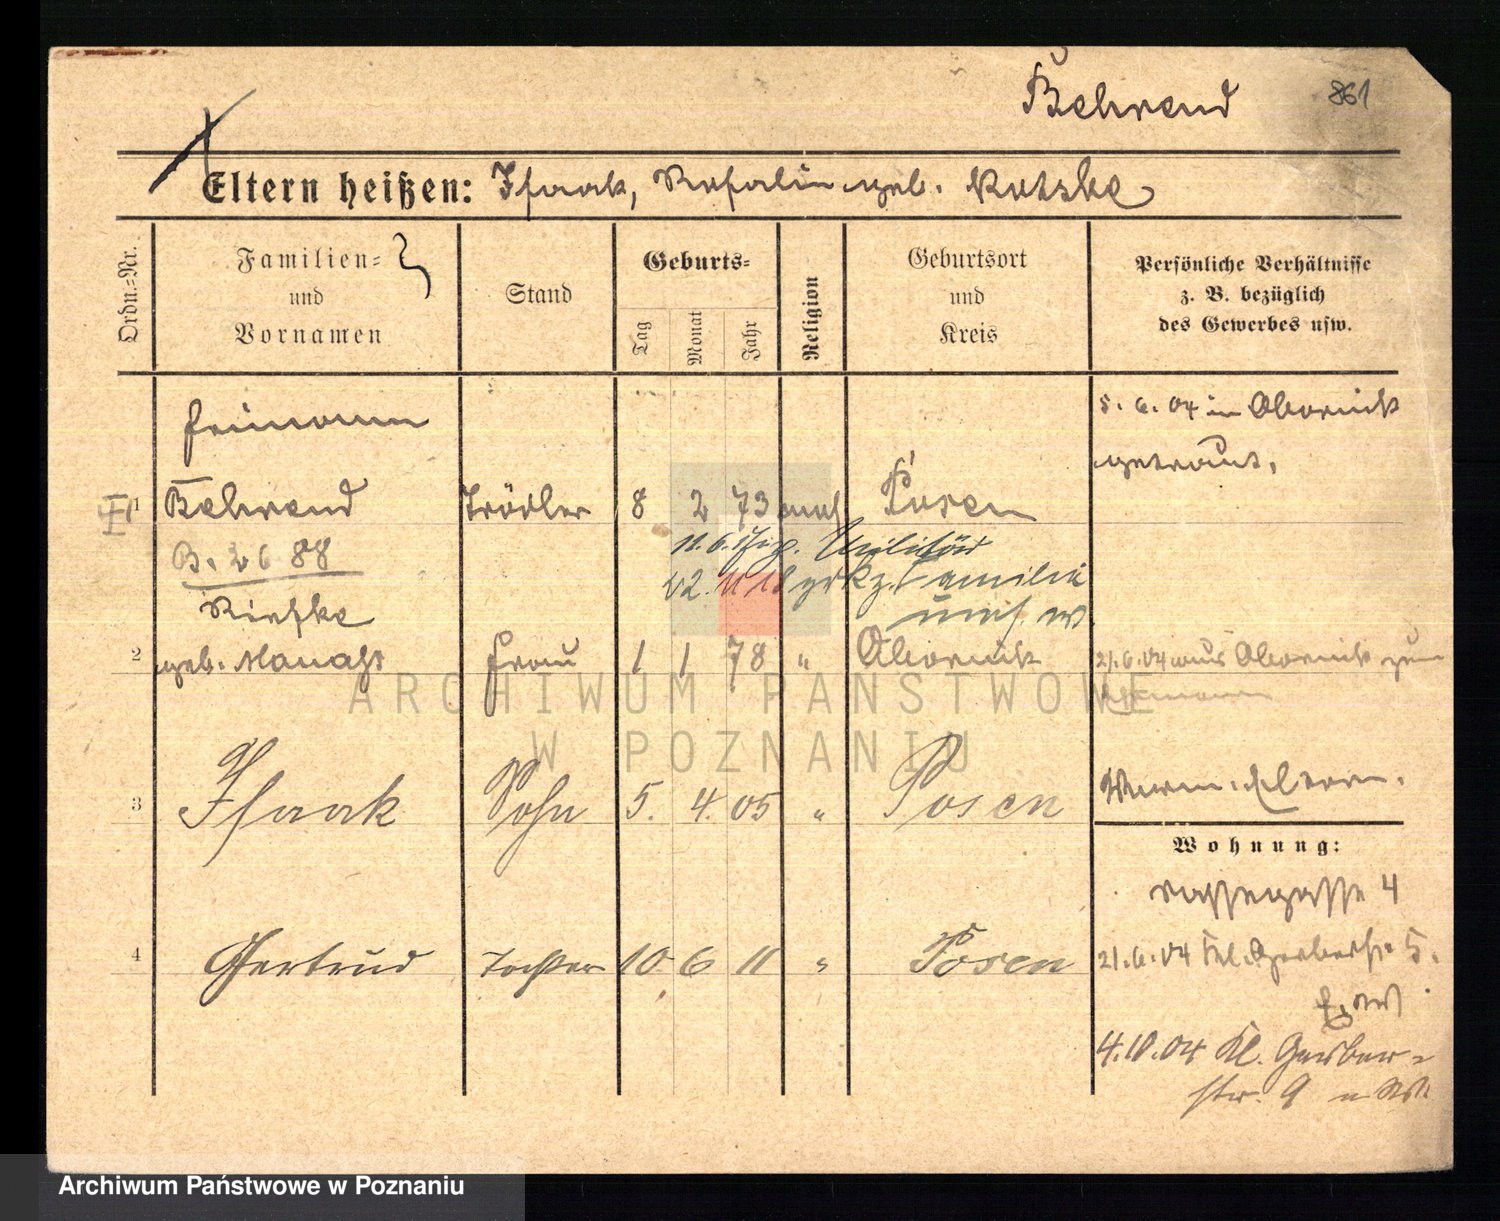 Behrend
861
Eltern heißen: Isaak, Rosalin geb. Rotzke
Ordn.=Nr.
Familien=
und
Vornamen
Stand
Geburts=
Tag
Monat
Jahr
Religion
Geburtsort
und
Kreis
Persönliche Verhältnisse
z. B. bezüglich
des Gewerbes usw.
5. 6. 04 in Obornik
getraut.
Heimann
1 Behrend Trödler 8 2 73 mos Posen
B. 2 6 88
22. 11 18 zurück z. Familie
Riefke
2 geb. Manasse Frau 1 1 78 " Obornik
21.6.04 aus Obornik zum
Ehemann
3 Isaak Sohn 5. 4. 05 " Posen
Wohnung:
4
4 Gertrud Tochter 10. 6 11 " Posen
21.6.04 Kl. Gerberstr 5.
4.10.04 Kl. Gerber=
str. 9
ARCHIWUM PAŃSTWOWE
W POZNANIU
Archiwum Państwowe w Poznaniu